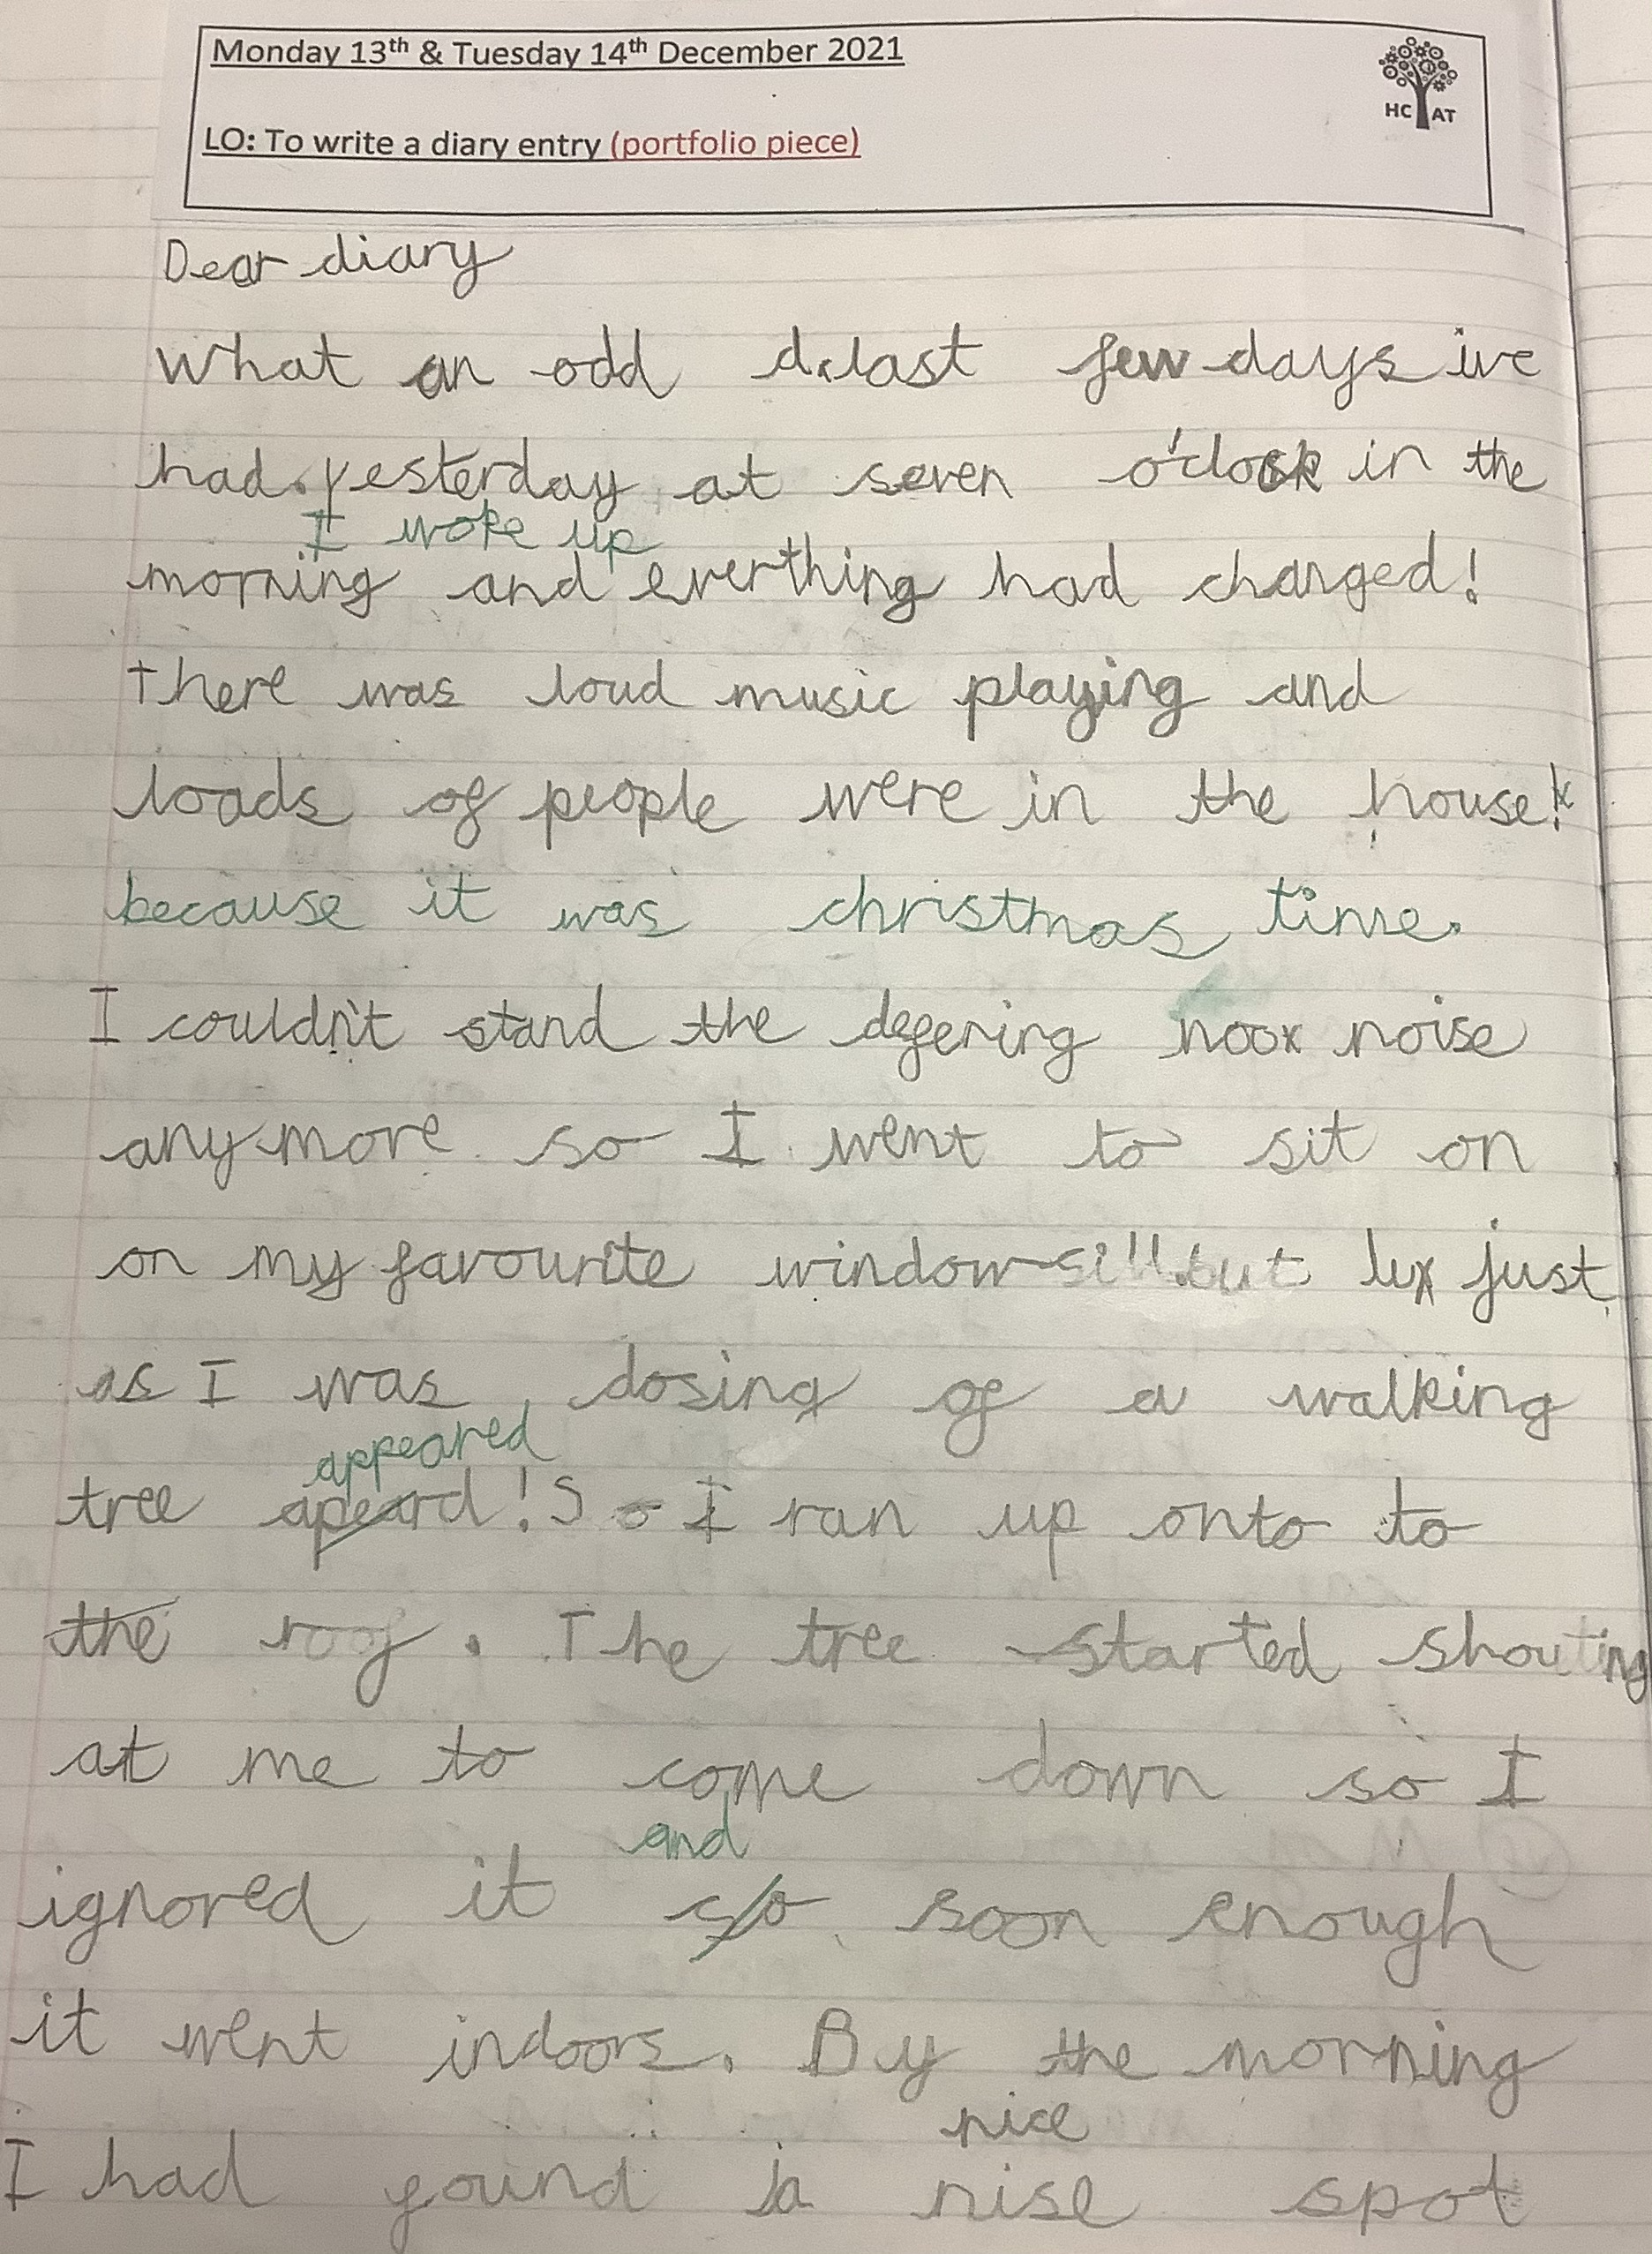 Monday 13th & Tuesday 14th December 2021
HC AT
LO: To write a diary entry (portfolio piece)
Dear diary
What an odd d.last few days ive
had. yesterday at seven o'clock in the
I woke up
morning and everthing had changed!
there was loud music playing and
loads of people were in the house!
because it was christmas time.
I couldn't stand the defening noox noise
anymore so I went to sit on
on my favourite window sill.but lux just
as I was dosing of a walking
appeared
tree apeard! So I ran up onto to
the roof. The tree started shouting
at me to come down so I
and
ignored it so soon enough
it went indoors. By the morning
nice
I had found a nise spot